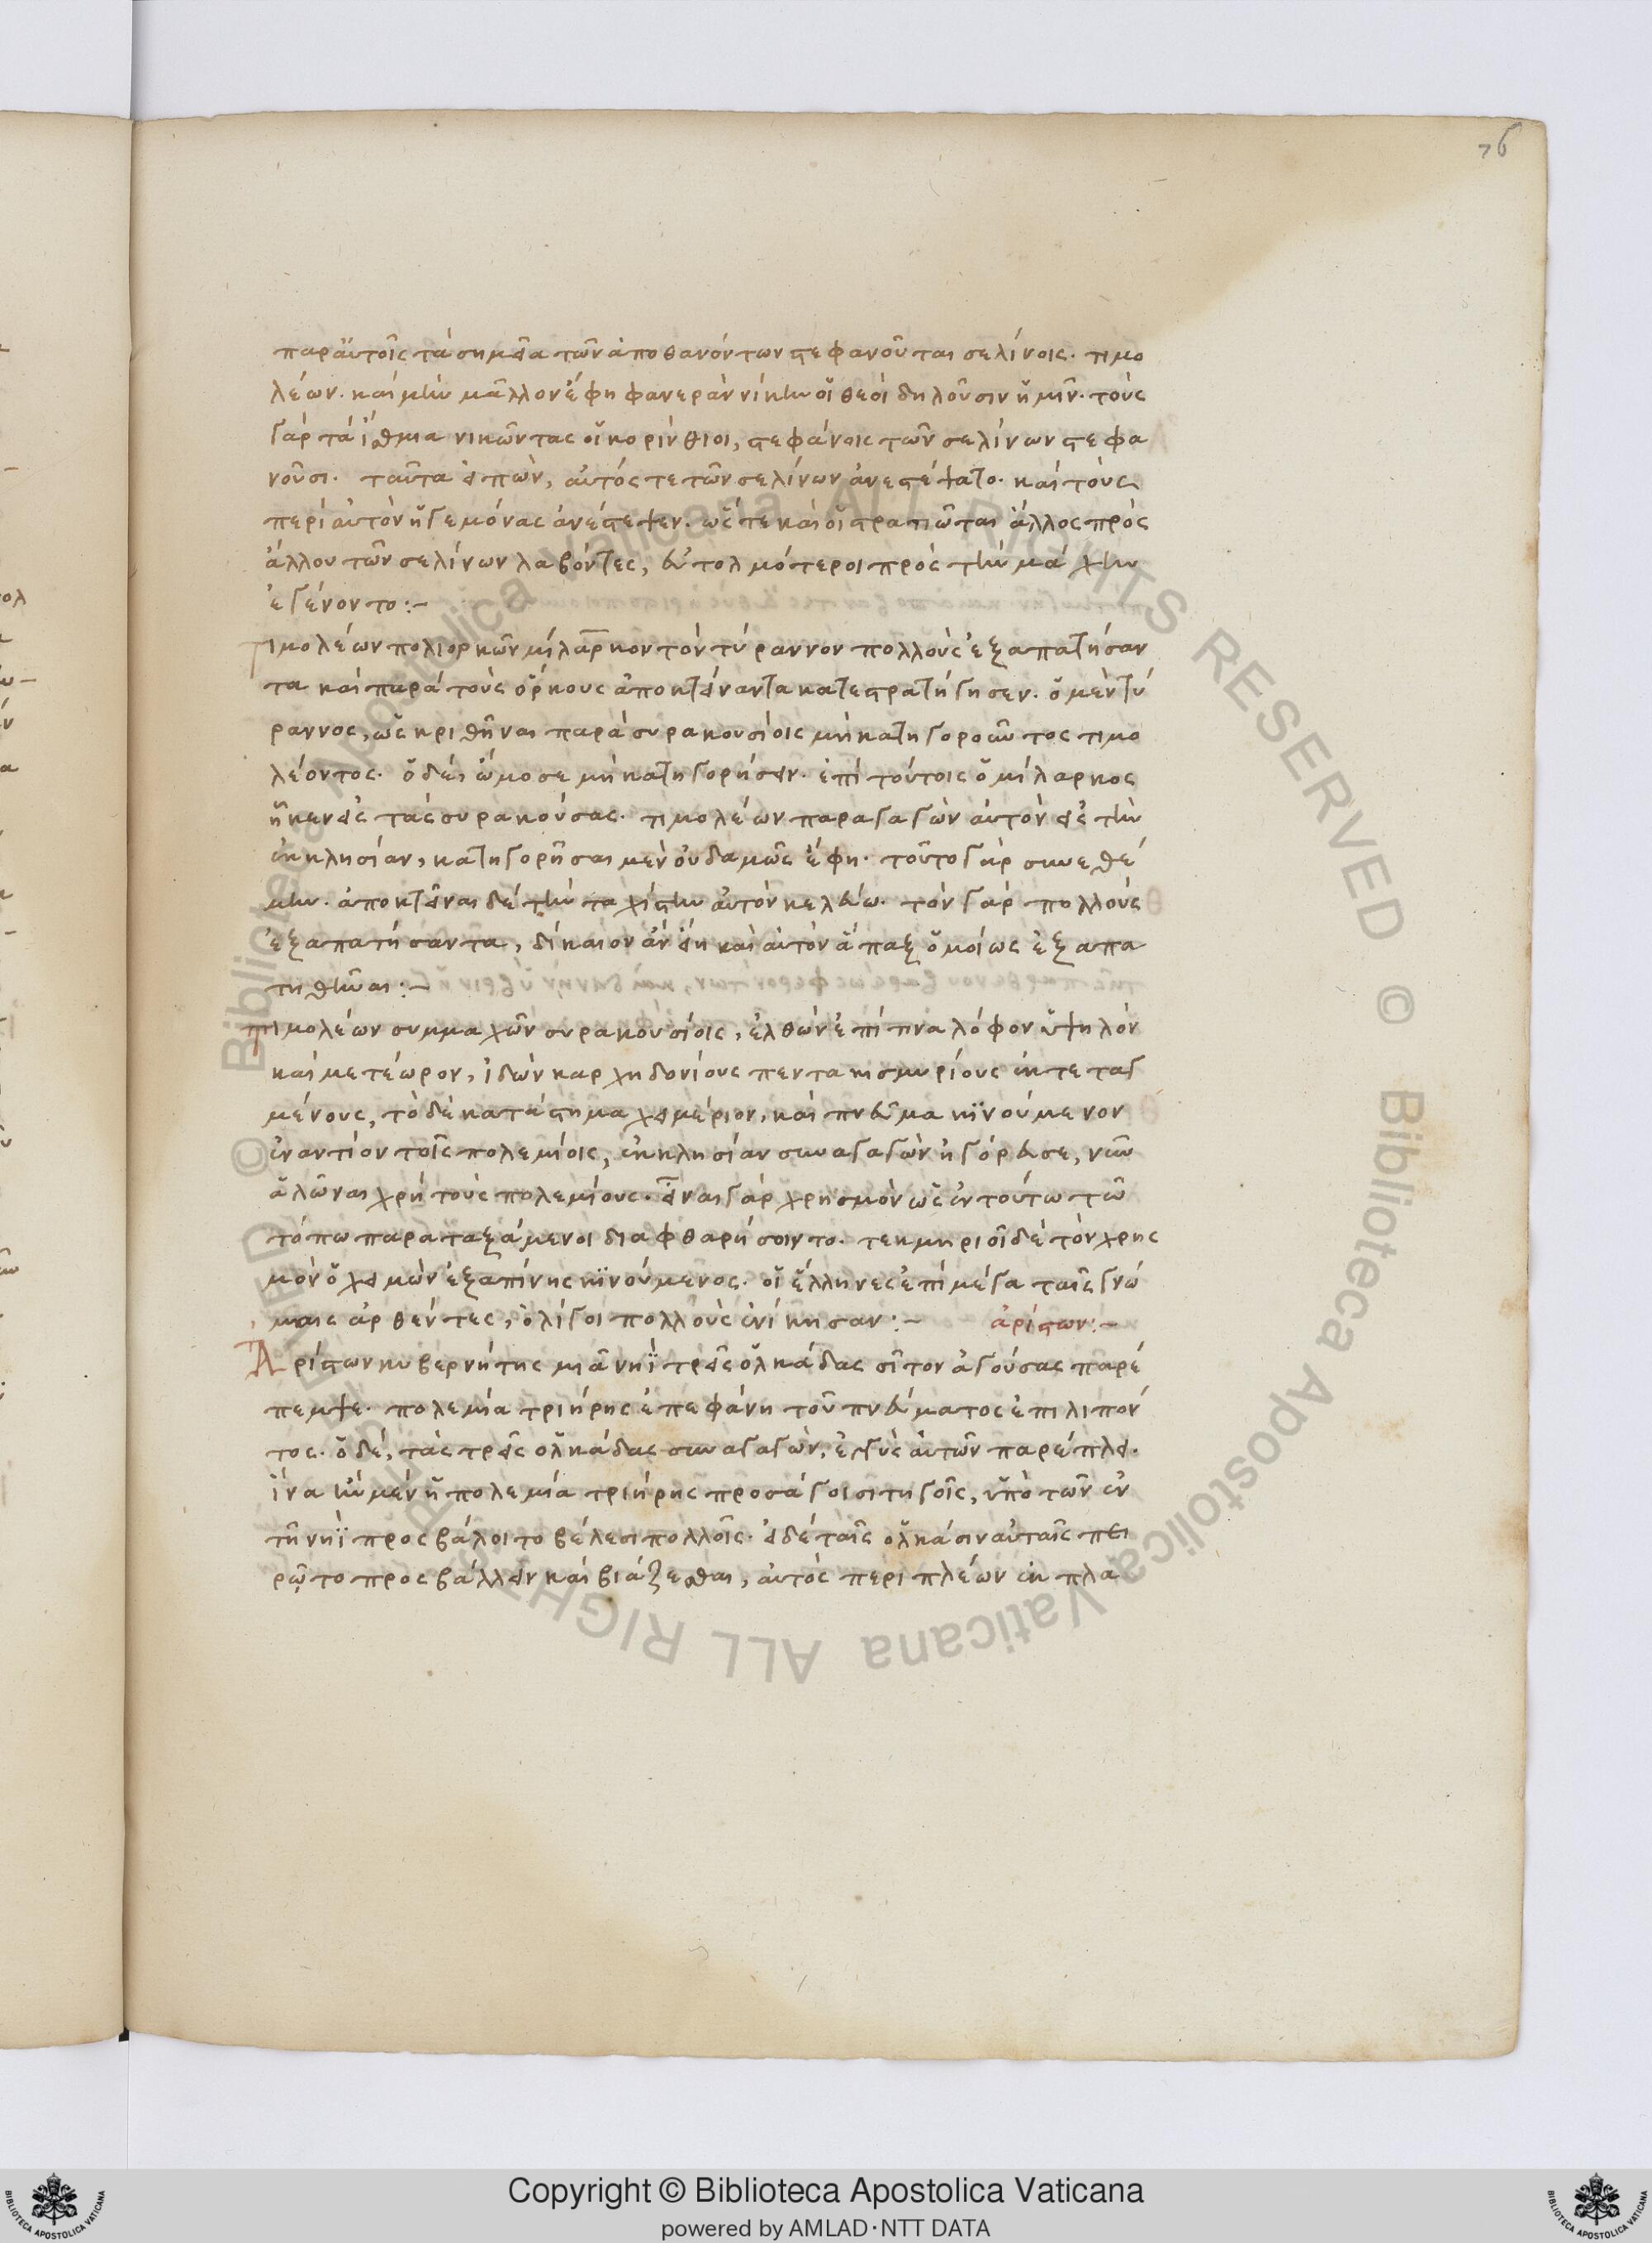 76
παρ' αὐτοῖς τὰ σημεῖα τῶν ἀποθανόντων στεφανοῦνται σελίνοις. τιμο
λέων. καὶ μὴν μᾶλλον ἔφη φανερὰν νίκην οἱ θεοὶ δηλοῦσιν ἡμῖν. τοὺς
γὰρ τὰ ἴσθμια νικῶντας οἱ κορίνθιοι, στεφάνοις τῶν σελίνων στεφα
νοῦσι. ταῦτα εἰπὼν, αὐτός τε τῶν σελίνων ἀνεστέψατο. καὶ τοὺς
περὶ αὐτὸν ἡγεμόνας ἀνέστεψεν. ὥστε καὶ οἱ στρατιῶται ἄλλος πρὸς
ἄλλου τῶν σελίνων λαβόντες, εὐτολμότεροι πρὸς τὴν μάχην
ἐγένοντο:-
Τιμολέων πολιορκῶν μίλαρκον τὸν τύραννον πολλοὺς ἐξαπατήσαν
τα καὶ παρὰ τοὺς ὅρκους ἀποκτείναντα κατεστρατήγησεν. ὁ μὲν τύ
ραννος, ὡς κριθῆναι παρὰ συρακουσίοις μὴ κατηγοροῦντος τιμο
λέοντος. ὁ δὲ ὤμοσε μὴ κατηγορήσειν. ἐπὶ τούτοις ὁ μίλαρκος
ἧκεν εἰς τὰς συρακούσας. τιμολέων παραγαγὼν αὐτὸν εἰς τὴν
ἐκκλησίαν, κατηγορῆσαι μὲν οὐδαμῶς ἔφη. τοῦτο γὰρ συνεθέ
μην. ἀποκτεῖναι δὲ τὴν ταχίστην αὐτὸν κελεύω. τὸν γὰρ πολλοὺς
ἐξαπατήσαντα, δίκαιον ἂν εἴη καὶ αὐτὸν ἅπαξ ὁμοίως ἐξαπα
τηθῆναι:-
Τιμολέων συμμαχῶν συρακουσίοις, ἐλθὼν ἐπί τινα λόφον ὑψηλὸν
καὶ μετέωρον, ἰδὼν καρχηδονίους πεντακισμυρίους ἐκτεταγ
μένους, τὸ δὲ κατάστημα χειμέριον, καὶ πνεῦμα κινούμενον
ἐναντίον τοῖς πολεμίοις, ἐκκλησίαν συναγαγὼν ἠγόρευσε, νῦν
ἁλῶναι χρὴ τοὺς πολεμίους. εἶναι γὰρ χρησμὸν ὡς ἐν τούτω τῶ
τόπω παραταξάμενοι διαφθαρήσοιντο. τεκμηριοῖ δὲ τὸν χρησ
μὸν ὁ χειμὼν ἐξαπίνης κινούμενος. οἱ ἕλληνες ἐπὶ μέγα ταῖς γνώ
μαις ἀρθέντες, ὀλίγοι πολλοὺς ἐνίκησαν:- ἀρίστων:-
Ἀρίστων κυβερνήτης μιᾶ νηῒ τρεῖς ὁλκάδας σῖτον ἀγούσας παρέ
πεμψε. πολεμία τριήρης ἐπεφάνη τοῦ πνεύματος ἐπιλιπόν
τος. ὁ δὲ, τὰς τρεῖς ὁλκάδας συναγαγὼν, ἐγγὺς αὐτῶν παρέπλει.
ἵνα ἢν μὲν ἡ πολεμία τριήρης προσάγοι σιτηγοῖς, ὑπὸ τῶν ἐν
τῆ νηῒ προσβάλοιτο βέλεσι πολλοῖς. εἰ δὲ ταῖς ὁλκάσιν αὐταῖς πει
ρῷτο προσβάλλειν καὶ βιάζεσθαι, αὐτὸς περιπλέων ἐκ πλα